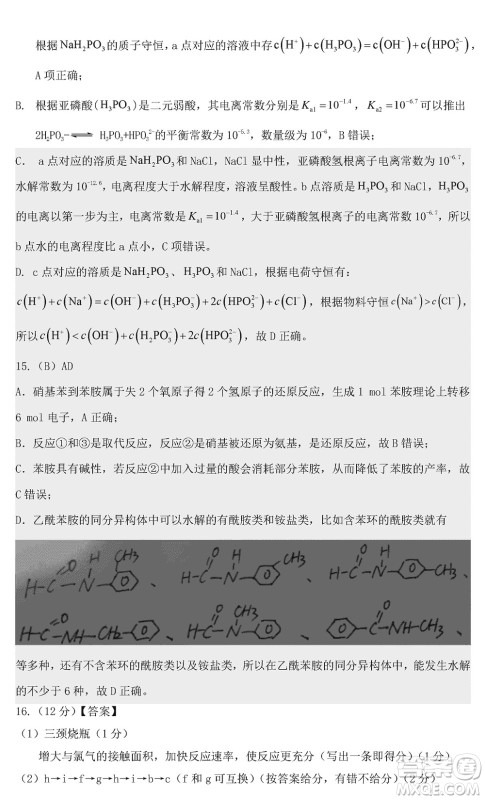 根据 NaH₂PO₃ 的质子守恒，a 点对应的溶液中存 c(H⁺)+c(H₃PO₃)=c(OH⁻)+c(HPO₃²⁻)，
A 项正确；
B. 根据亚磷酸(H₃PO₃)是二元弱酸，其电离常数分别是 Ka1=10⁻¹·⁴，Ka2=10⁻⁶·⁷可以推出
2H₂PO₃-⇌H₃PO₃+HPO₃²⁻的平衡常数为 10⁻⁵·³，数量级为 10⁻⁶，B 错误；
C. a 点对应的溶质是 NaH₂PO₃ 和 NaCl，NaCl 显中性，亚磷酸氢根离子的电离常数为 10⁻⁶·⁷，
水解常数为 10⁻¹²·⁶，电离程度大于水解程度，溶液呈酸性。b 点溶质是 H₃PO₃ 和 NaCl，H₃PO₃
的电离以第一步为主，电离常数为 Ka1=10⁻¹·⁴，大于亚磷酸氢根离子的电离常数 10⁻⁶·⁷，所以
b 点水的电离程度比 a 点小，C 项错误。
D. c 点对应的溶质是 NaH₂PO₃、H₃PO₃ 和 NaCl。根据电荷守恒有：
c(H⁺)+c(Na⁺)=c(OH⁻)+c(H₂PO₃⁻)+2c(HPO₃²⁻)+c(Cl⁻)，根据物料守恒 c(Na⁺)>c(Cl⁻)，
所以 c(H⁺)<c(OH⁻)+c(H₂PO₃⁻)+2c(HPO₃²⁻)，故 D 正确。
15.（B）AD
A．硝基苯到苯胺属于失 2 个氧原子得 2 个氢原子的还原反应，生成 1 mol 苯胺理论上转移
6 mol 电子，A 正确；
B．反应①和③是取代反应，反应②是硝基被还原为氨基，是还原反应，故 B 错误；
C．苯胺具有碱性，若反应②中加入过量的酸会消耗部分苯胺，从而降低了苯胺的产率，故
C 错误；
D．乙酰苯胺的同分异构体中可以水解的有酰胺类和铵盐类，比如含苯环的酰胺类就有
H-C(=O)-N(H)-CH₃、H-C(=O)-N(H)-CH₃、H-C(=O)-N(H)-CH₃、
H-C(=O)-NH-CH₂、H-C(=O)-N-CH₃、C(=O)-NH-CH₃
等多种，还有不含苯环的酰胺类以及铵盐类，所以在乙酰苯胺的同分异构体中，能发生水解
的不少于 6 种，故 D 正确。
16.（12 分）【答案】
（1）三颈烧瓶（1 分）
增大与氯气的接触面积，加快反应速率，使反应更充分（写出一条即可）（1 分）
（2）h→i→f→g→h→i→b→c（f 和 g 可互换）（按答案给分，有错不给分）（2 分）